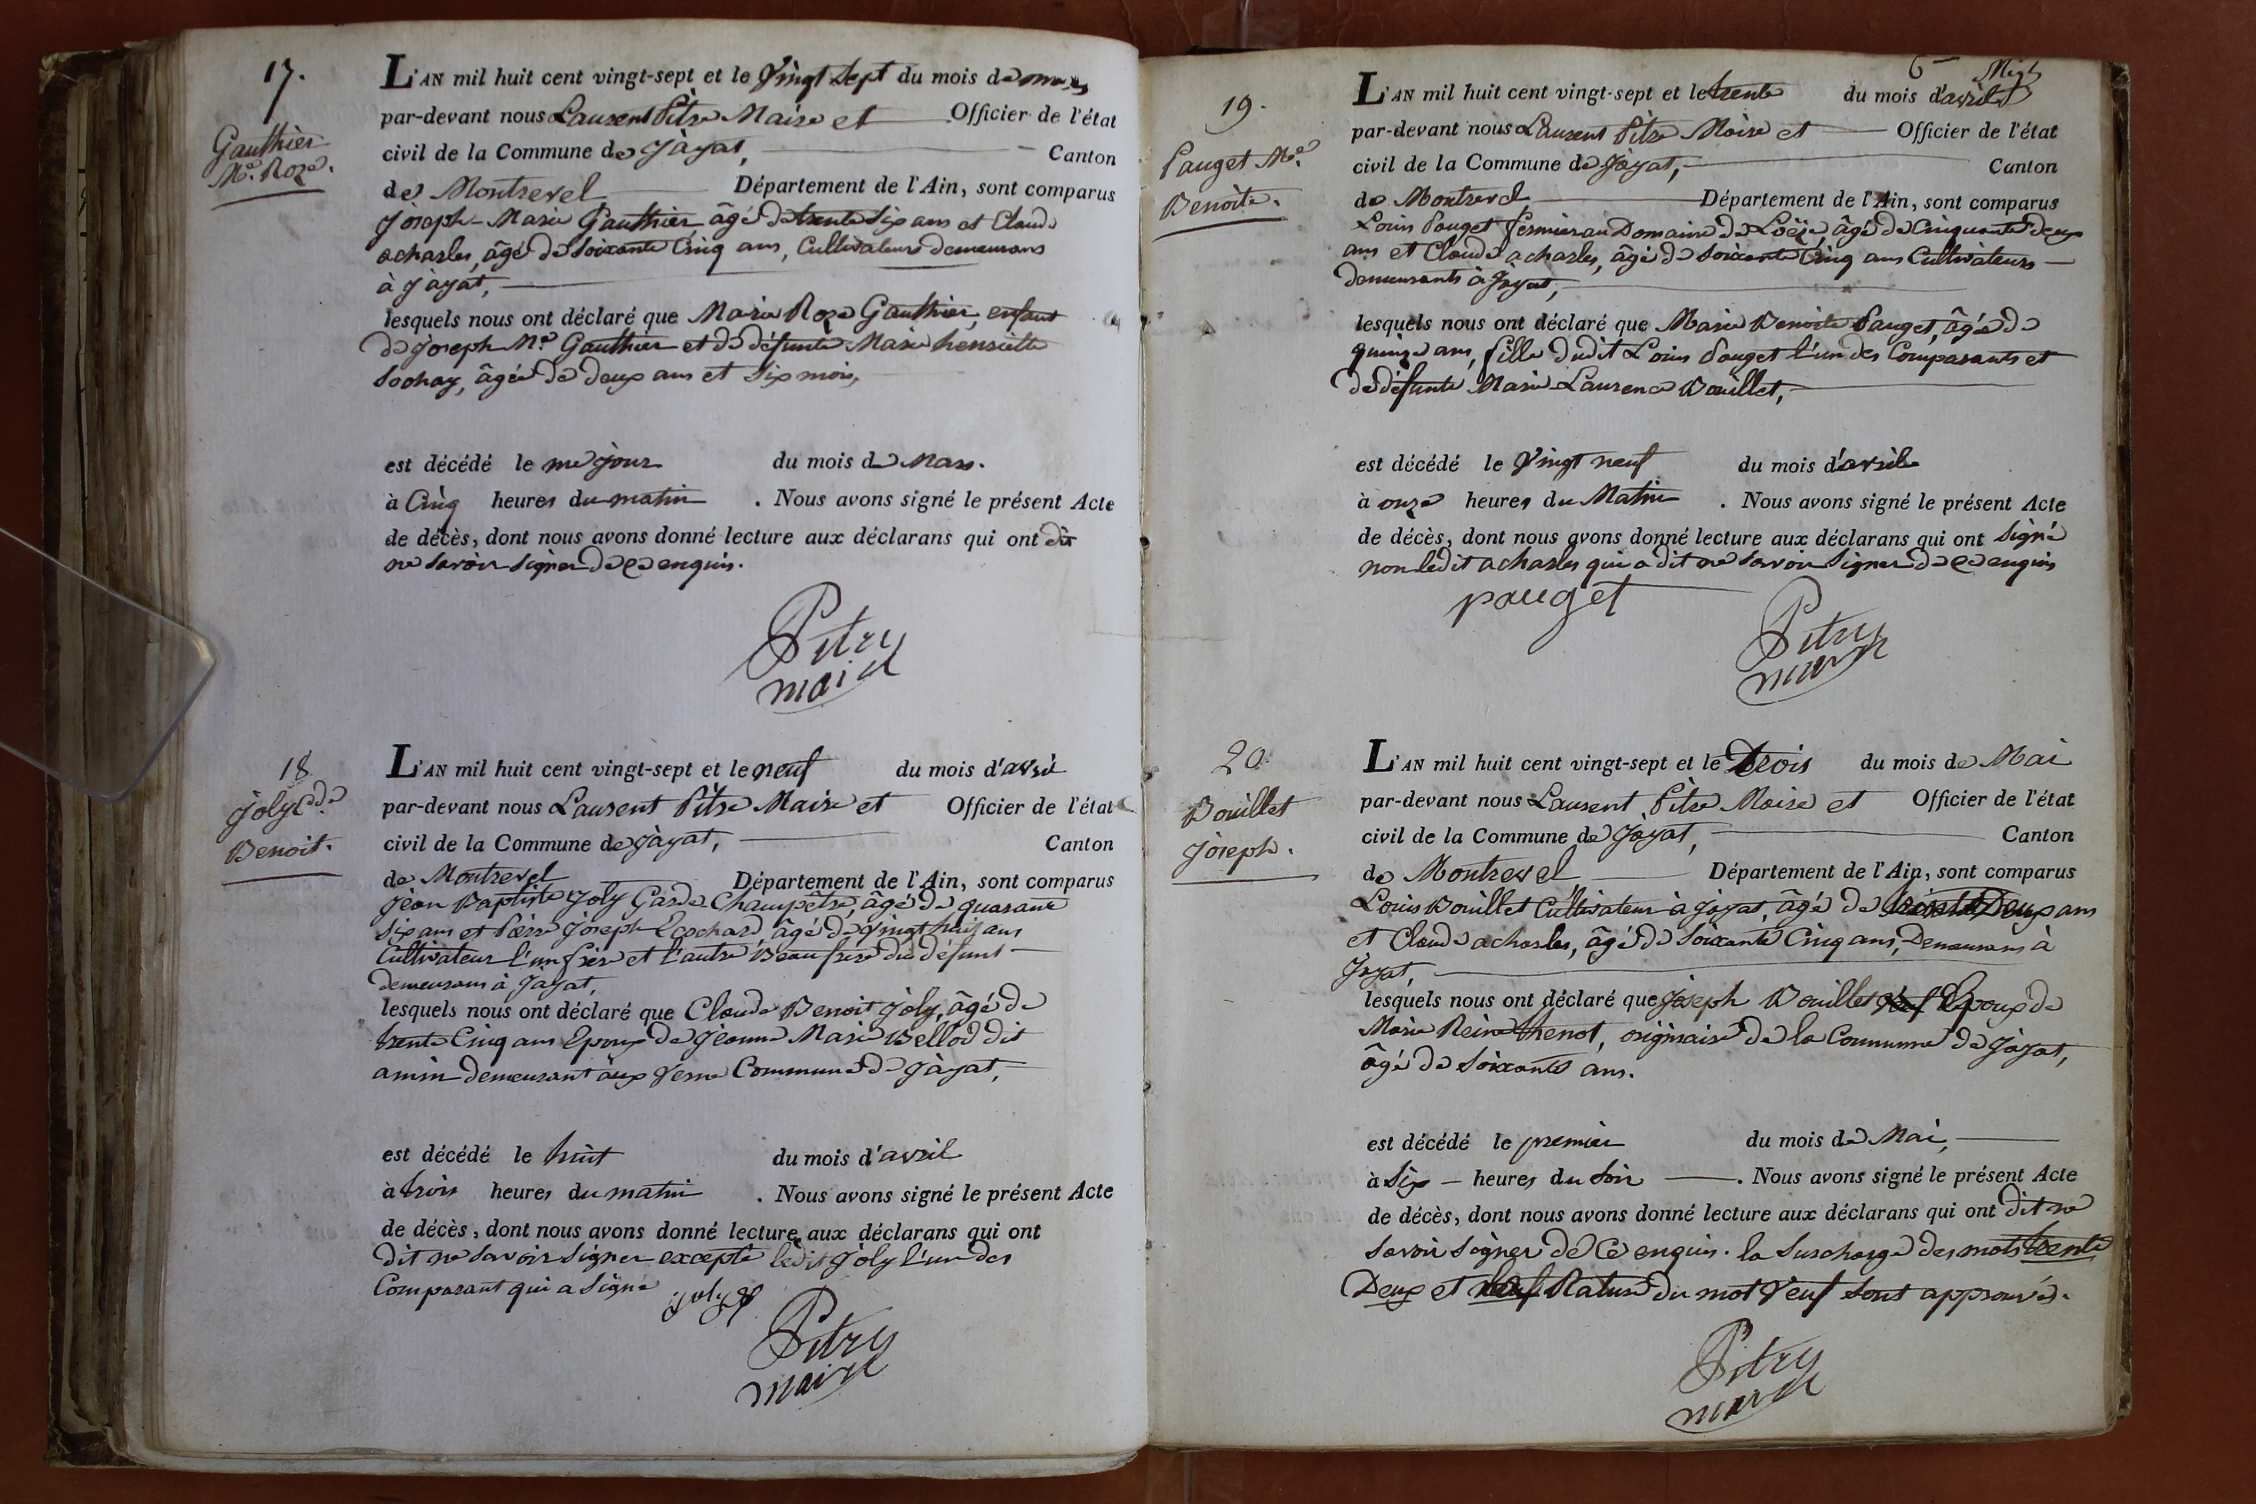 17.
Gauthier
Mie. Roze.
L'AN mil huit cent vingt-sept et le Vingt Sept du mois de mars
par-devant nous Laurent Pitre Maire et Officier de l'état
civil de la Commune de Jàyat, Canton
de Montrevel Département de l'Ain, sont comparus
Joseph-Marie Gauthier âgé de trente Six ans et Claude
acharles, âgé de Soixante Cinq ans, Cultivateurs demeurans
à Jàyat,
lesquels nous ont déclaré que Marie Roze Gauthier, enfant
de Joseph Mie Gauthier et de défunte Marie henriette
Sochay, âgée de deux ans et Six mois,
est décédé le me Jour du mois de Mars.
à Cinq heures du matin . Nous avons signé le présent Acte
de décès, dont nous avons donné lecture aux déclarans qui ont dit
ne Savoir Signer de Ce enquis.
Pitre
maire
18
Joly Cde
Benoit.
L'AN mil huit cent vingt-sept et le neuf du mois d'avril
par-devant nous Laurent Pitre Maire et Officier de l'état
civil de la Commune de Jàyat, Canton
de Montrevel Département de l'Ain, sont comparus
Jèan Baptiste Joly Garde Champêtre, âgé de quarante
Six ans et Pierre Joseph Ecochard, âgé de Vingt huit ans
Cultivateur l'un frère et l'autre Beau frère du défunt
demeurans à Jàyat,
lesquels nous ont déclaré que Claude Benoit Joly, âgé de
trente Cinq ans Epoux de Jeanne Marie Bellod dit
amin demeurant aux Verne Commune de Jàyat,
est décédé le huit du mois d'avril
à trois heures du matin . Nous avons signé le présent Acte
de décès, dont nous avons donné lecture aux déclarans qui ont
dit ne Savoir Signer excepté ledit Joly l'un des
Comparant qui a Signé
joly
Pitre
maire
6me
19.
Pauget Mie.
Benoite.
L'AN mil huit cent vingt-sept et le trente du mois d'avril
par-devant nous Laurent Pitre Maire et Officier de l'état
civil de la Commune de Jàyat, Canton
de Montrevel Département de l'Ain, sont comparus
Louis Pauget fermier au Domaine de Loëze, âgé de Cinquante deux
ans et Claude acharles, âgé de Soixante Cinq ans Cultivateurs
demeurants à Jàyat,
lesquels nous ont déclaré que Marie Benoite Pauget, âgée de
quinze ans, fille dudit Louis Pauget l'un des Comparants et
de défunte Marie Laurence Bouillet,
est décédé le Vingt neuf du mois d'avril
à onze heures du Matin . Nous avons signé le présent Acte
de décès, dont nous avons donné lecture aux déclarans qui ont Signé
non ledit acharles qui a dit ne Savoir Signer de Ce enquis
pauget
Pitre
maire
20.
Bouillet
Joseph.
L'AN mil huit cent vingt-sept et le Trois du mois de Mai
par-devant nous Laurent Pitre Maire et Officier de l'état
civil de la Commune de Jàyat, Canton
de Montrevel Département de l'Ain, sont comparus
Louis Bouillet Cultivateur à Jayat, âgé de trente Deux ans
et Claude acharles, âgé de Soixante Cinq ans, Demeurans à
Jayat,
lesquels nous ont déclaré que Joseph Bouillet Veuf Epoux de
Marie Reine thenot, originaire de la Commune de Jàyat,
âgé de Soixante ans.
est décédé le premier du mois de Mai,
à Six heures du Soir . Nous avons signé le présent Acte
de décès, dont nous avons donné lecture aux déclarans qui ont dit ne
Savoir Signer de Ce enquis. la Surcharge des mots trente
Deux et Rature du mot Veuf Sont approuvés.
Pitre
maire